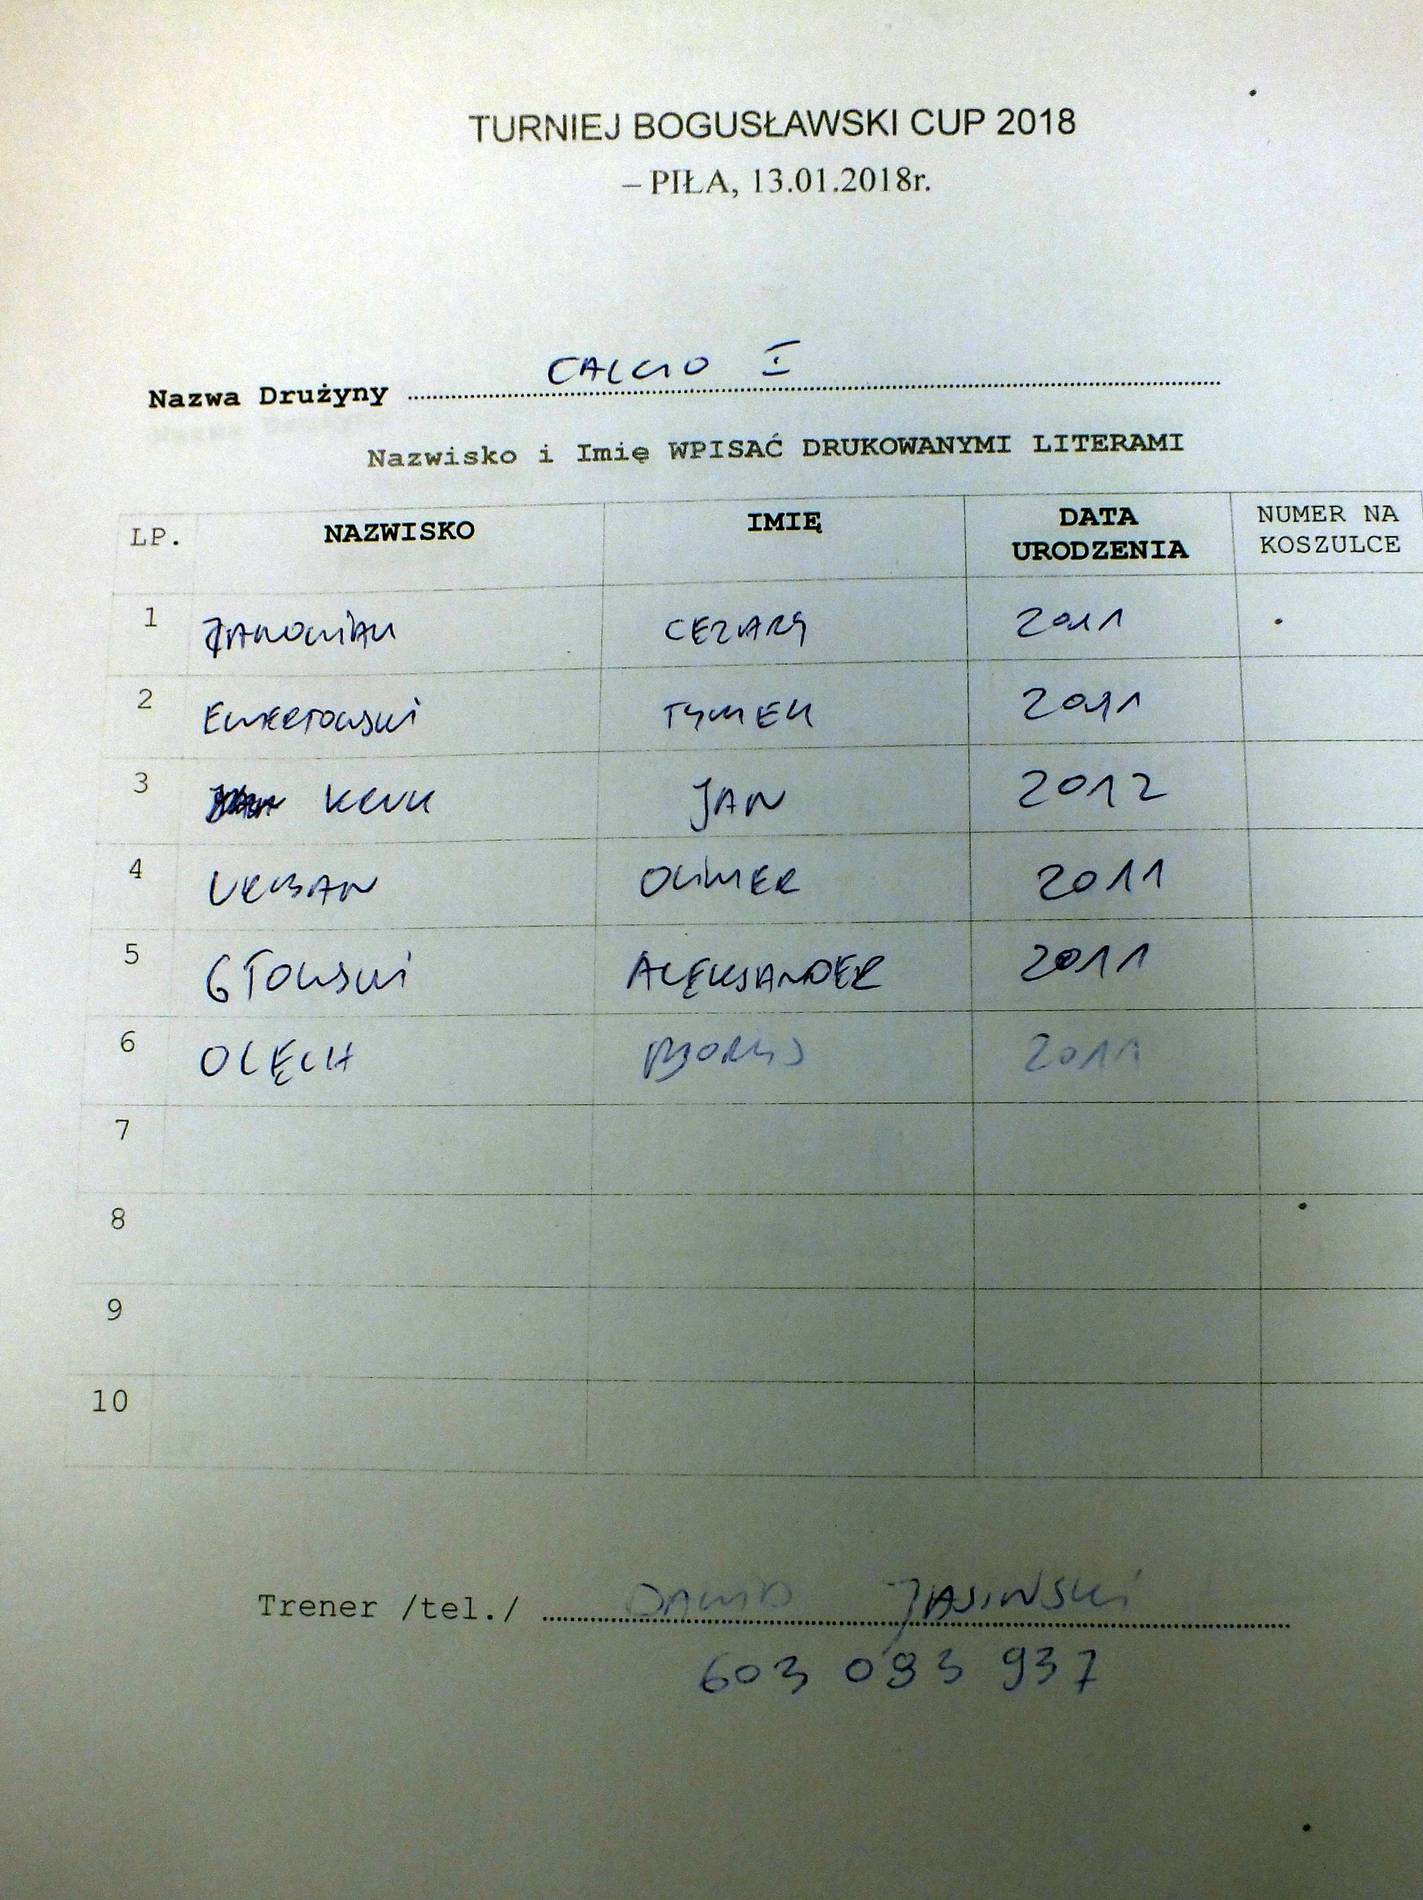 TURNIEJ BOGUSŁAWSKI CUP 2018
– PIŁA, 13.01.2018r.
Nazwa Drużyny CALCIO I
Nazwisko i Imię WPISAĆ DRUKOWANYMI LITERAMI
LP. NAZWISKO IMIĘ DATA URODZENIA NUMER NA KOSZULCE
1 CEZARY 2011
2 TYMEK 2011
3 JAN 2012
4 URBAN OLIWER 2011
5 GŁOWSKI ALEKSANDER 2011
6 OLĘCH BORYS 2011
7
8
9
10
Trener /tel./ DAWID JASIŃSKI
603 093 937